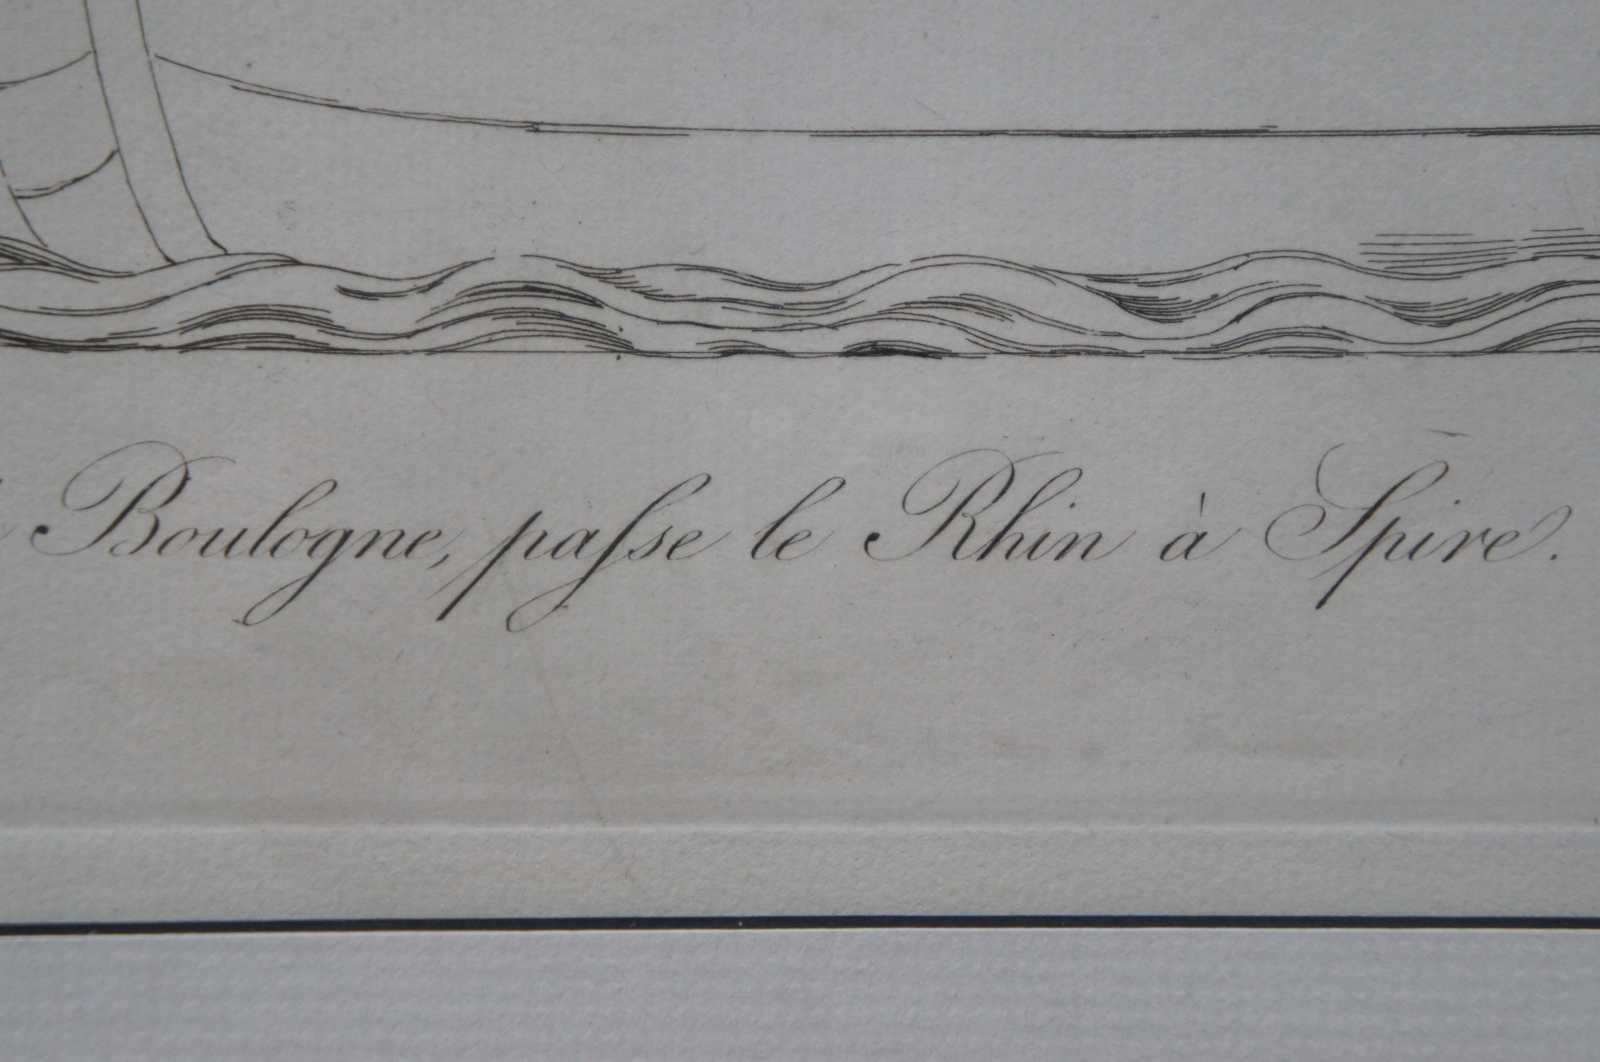 Boulogne, paſse le Rhin à Spire.